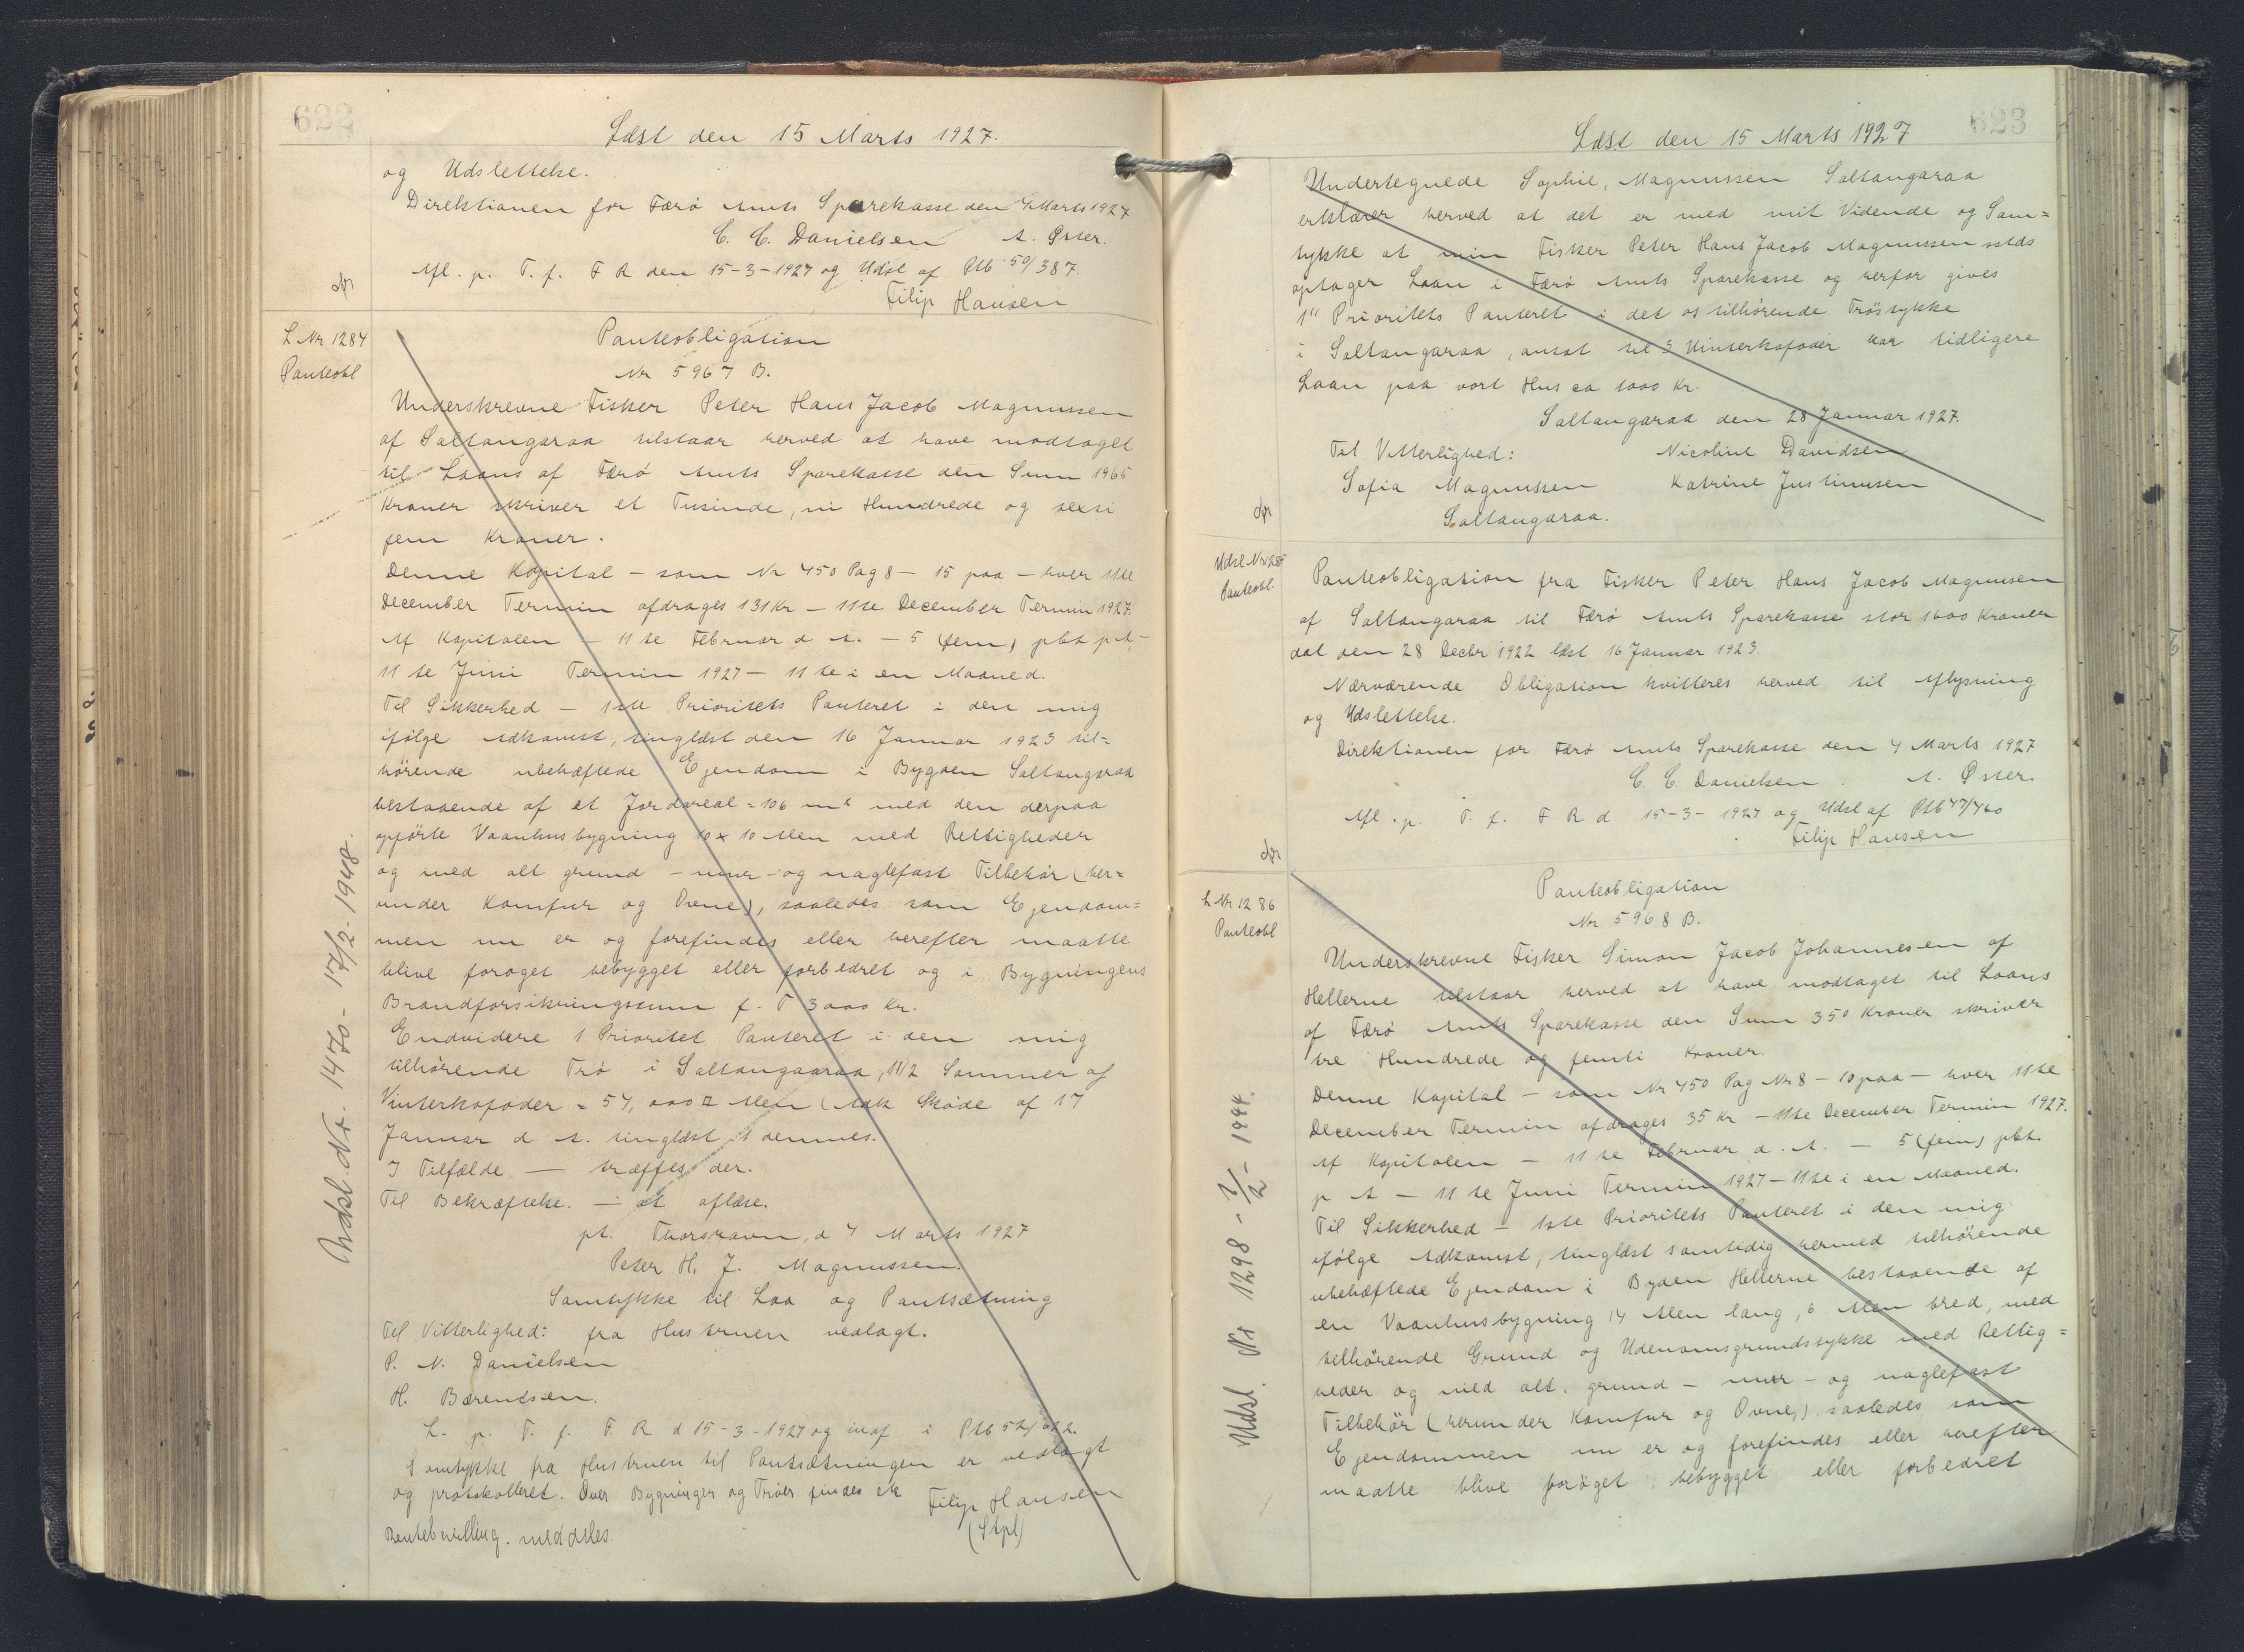 622
Læst den 15 Marts 1927.
og Udslettelse.
Direktionen for Færø Amts Sparekasse den 4 Marts 1927
C. C. Danielsen A. Øster.
Afl. p. T. f. F R den 15-3-1927 og Udsl af Ptb 50/387.
Filip Hansen
L Nr 1284
Panteobl
Panteobligation
Nr 5967 B.
Underskrevne Fisker Peter Hans Jacob Magnussen
af Saltangaraa tilstaar herved at have modtaget
til Laans af Færø Amts Sparekasse den Sum 1965
Kroner skriver et Tusinde, ni Hundrede og seksti
fem Kroner.
Denne Kapital - som Nr 450 Pag 8 - 15 paa - hver 11te
December Termin afdrages 131 Kr - 11te December Termin 1927.
Af Kapitalen - 11 te Februar d A. - 5 (fem) pCt p A -
11 te Juni Termin 1927 - 11 te i en Maaned.
Til Sikkerhed - 1ste Prioritets Panteret i den mig
ifølge Adkomst, tinglæst den 16 Januar 1923 til=
hørende ubehæftede Ejendom i Bygden Saltangaraa
bestaaende af et Jordareal = 106 m² med den derpaa
opførte Vaanhusbygning 10 x 10 Alen med Rettigheder
og med alt grund - mur - og naglefast Tilbehør (her=
under Komfur og Ovne), saaledes som Ejendom=
men nu er og forefindes eller herefter maatte
blive forøget bebygget eller forbedret og i Bygningens
Brandforsikringssum f. T 3000 Kr.
Endvidere 1 Prioritet Panteret i den mig
tilhørende Trø i Saltangaaraa, 1 1/2 Sommer af
Vinterkofoder = 54,000 □ Alen (Adk Skøde af 17
Januar d A. tinglæst d dennes.
I Tilfælde - træffes der.
Til Bekræftelse. - at aflæse.
pt. Thorshavn, d 4 Marts 1927
Peter H. J. Magnussen.
Samtykke til Laa og Pantsætning
Til Vitterlighed: fra Hustruen vedlagt.
P. N. Danielsen
H. Bærentsen.
L. p. T. f. F. R d 15-3-1927 og indf i Ptb 52/622.
Samtykke fra Hustruen til Pantsætningen er vedlagt
og protokolleret. Over Bygninger og Trøer findes ik
Filip Hansen
(Stpl)
meddeles.
Udsl. Nr. 1470 - 17/2 - 1948.
623
Læst den 15 Marts 1927
Undertegnede Sophie, Magnussen Saltangaraa
erklærer herved at det er med mit Vidende og Sam=
tykke at min Fisker Peter Hans Jacob Magnussen
optager Laan i Færø Amts Sparekasse og herfor gives
1" Prioritets Panteret i det os tilhørende Trøstykke
i Saltangaraa, ansat til 3 Vinterkofoder har tidligere
Laan paa vort Hus ca 1000 Kr.
Saltangaraa den 28 Januar 1927.
Til Vitterlighed: Nicoline Davidsen
Sofia Magnussen Katrine Justinusen
Saltangaraa.
Udsl Nr 1285
Panteobl.
Panteobligation fra Fisker Peter Hans Jacob Magnusen
af Saltangaraa til Færø Amts Sparekasse stor 1600 Kroner
dat den 28 Decbr 1922 læst 16 Januar 1923.
Nærværende Obligation kvitteres herved til Aflysning
og Udslettelse.
Direktionen for Færø Amts Sparekasse den 4 Marts 1927
C. C. Danielsen. A. Øster.
Afl. p. T. f. F R d 15-3-1927 og Udsl af Ptb 47/460
Filip Hansen
L Nr 1286
Panteobl
Panteobligation
Nr 5968 B.
Underskrevne Fisker Simon Jacob Johannesen af
Hellerne tilstaar herved at have modtaget til Laans
af Færø Amts Sparekasse den Sum 350 Kroner skriver
tre Hundrede og femti Kroner.
Denne Kapital - som Nr 450 Pag Nr 8 - 10 paa - hver 11te
December Termin afdrages 35 Kr - 11te December Termin 1927.
Af Kapitalen - 11 te Februar d. A. - 5 (fem) pCt.
p A - 11 te Juni Termin 1927 - 11te i en Maaned.
Til Sikkerhed - 1ste Prioritets Panteret i den mig
ifølge Adkomst, tinglæst samtidig hermed tilhørende
ubehæftede Ejendom i Byden Hellerne bestaaende af
en Vaanhusbygning 14 Alen lang, 6 Alen bred, med
tilhørende Grund og Udenomsgrundstykke med Rettig=
heder og med alt, grund - mur - og naglefast
Tilbehør (herunder Komfur og Ovne,) saaledes som
Ejendommen nu er og forefindes eller herefter
maatte blive forøget, bebygget eller forbedret
Udsl. Nr 1298 - 7/2 - 1944.